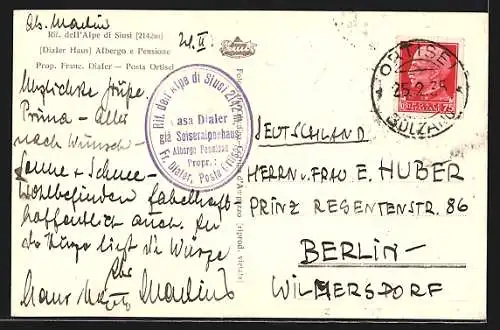 Abs. Martin
Rif. dell'Alpe di Siusi [2142m]
[Dialer Haus] Albergo e Pensione
Prop. Franc. Dialer – Posta Ortisei
24. II
Rif. dell'Alpe di Siusi 2142 m
asa Dialer
già Seiseralpenhaus
Albergo Pensione
Propr.:
Fr. Dialer, Posta Ortisei
ORTISEI
25.2.38
BOLZANO
75
Herzlichste Grüße
Prima – Alles
nach Wunsch –
Sonne + Schnee –
Wohlbefinden fabelhaft
hoffentlich auch. In
der Kürze liegt die Würze
Ihr
Hans Martin
DEUTSCHLAND
HERRN U. FRAU E. HUBER
PRINZ REGENTENSTR. 86
BERLIN –
WILMERSDORF